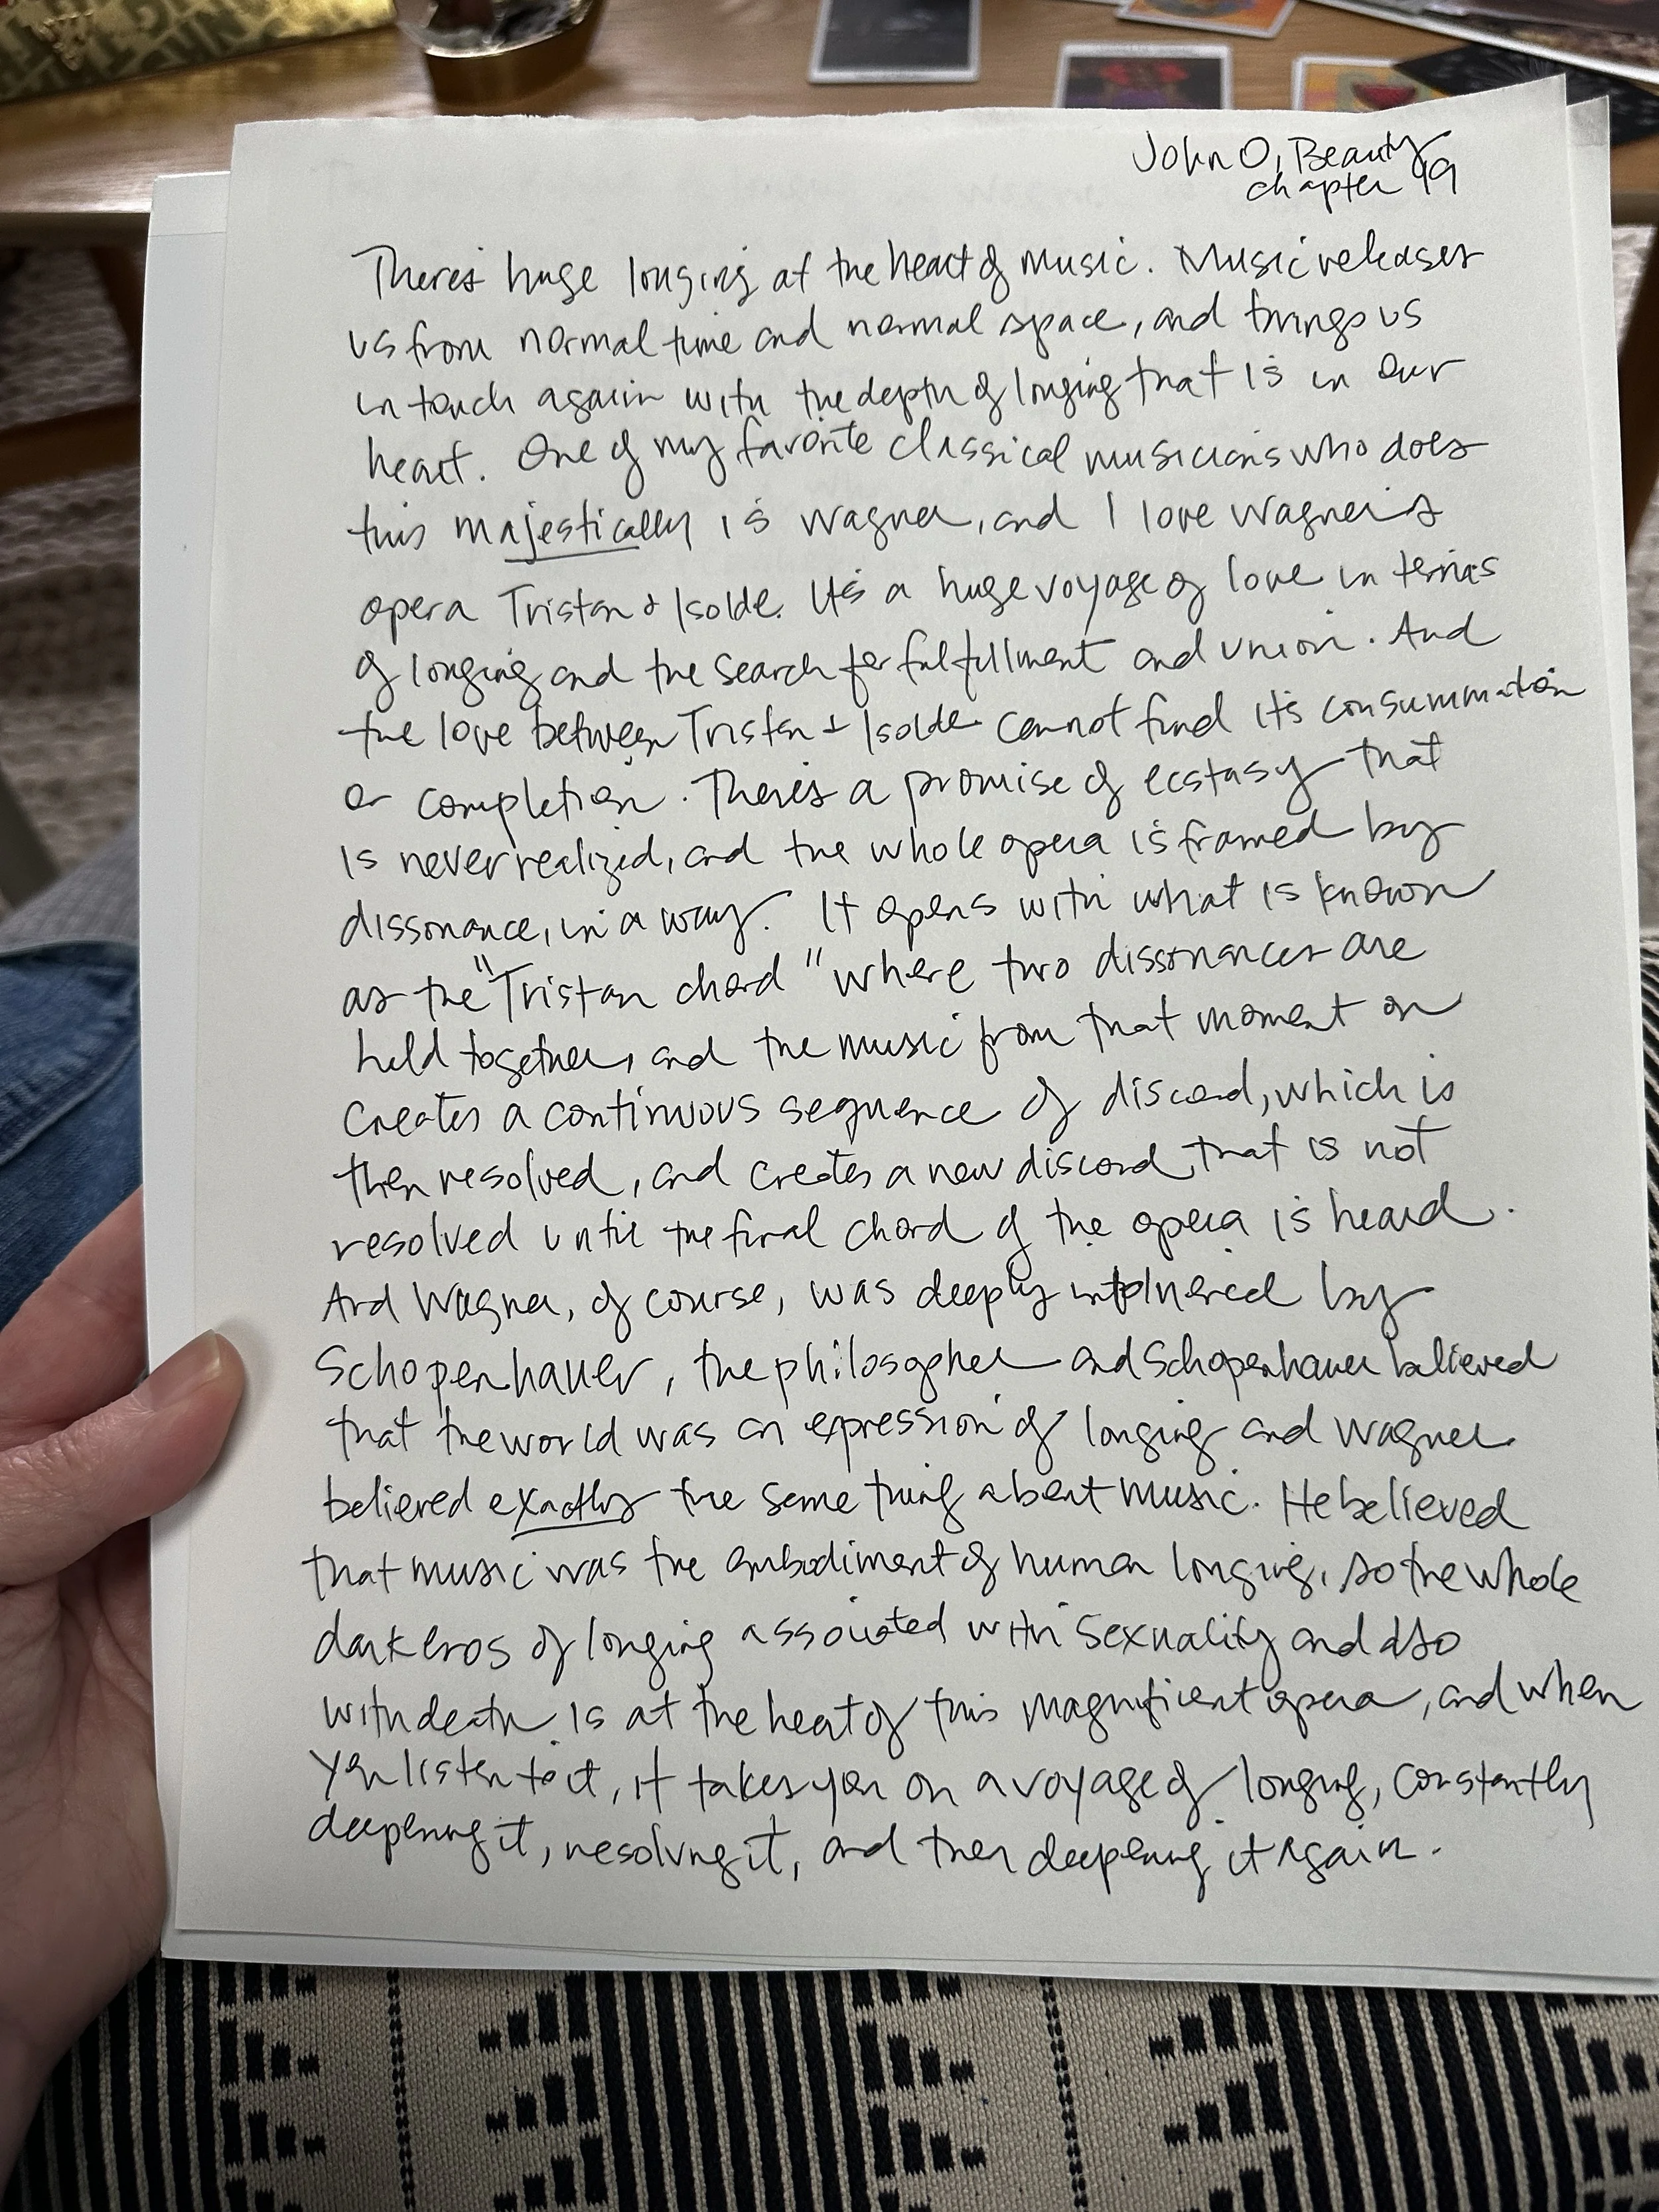 John O, Beauty
chapter 49
There's huge longing at the heart of music. Music releases
us from normal time and normal space, and brings us
in touch again with the depth of longing that is in our
heart. One of my favorite classical musicians who does
this majestically is Wagner, and I love Wagner's
opera Tristan & Isolde. It's a huge voyage of love in terms
of longing and the search for fulfillment and union. And
the love between Tristan & Isolde cannot find its consummation
or completion. There's a promise of ecstasy that
is never realized, and the whole opera is framed by
dissonance, in a way. It opens with what is known
as the "Tristan chord" where two dissonances are
held together, and the music from that moment on
creates a continuous sequence of discord, which is
then resolved, and creates a new discord that is not
resolved until the final chord of the opera is heard.
And Wagner, of course, was deeply influenced by
Schopenhauer, the philosopher and Schopenhauer believed
that the world was an expression of longing and Wagner
believed exactly the same thing about music. He believed
that music was the embodiment of human longing, so the whole
dark Eros of longing associated with sexuality and also
with death is at the heart of this magnificent opera, and when
you listen to it, it takes you on a voyage of longing, constantly
deepening it, resolving it, and then deepening it again.